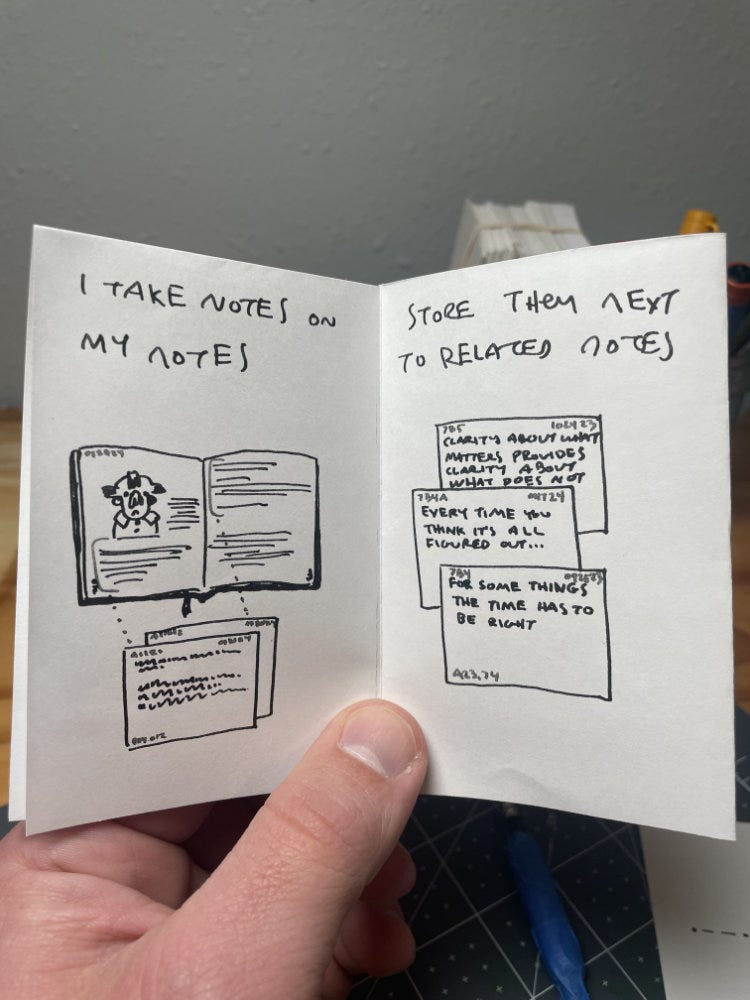 I TAKE NOTES ON
MY NOTES
STORE THEM NEXT
TO RELATED NOTES
7B5
CLARITY ABOUT WHAT
MATTERS PROVIDES
CLARITY ABOUT
WHAT DOES NOT
7B4A
EVERY TIME YOU
THINK IT'S ALL
FIGURED OUT...
7B4
FOR SOME THINGS
THE TIME HAS TO
BE RIGHT
A23.74